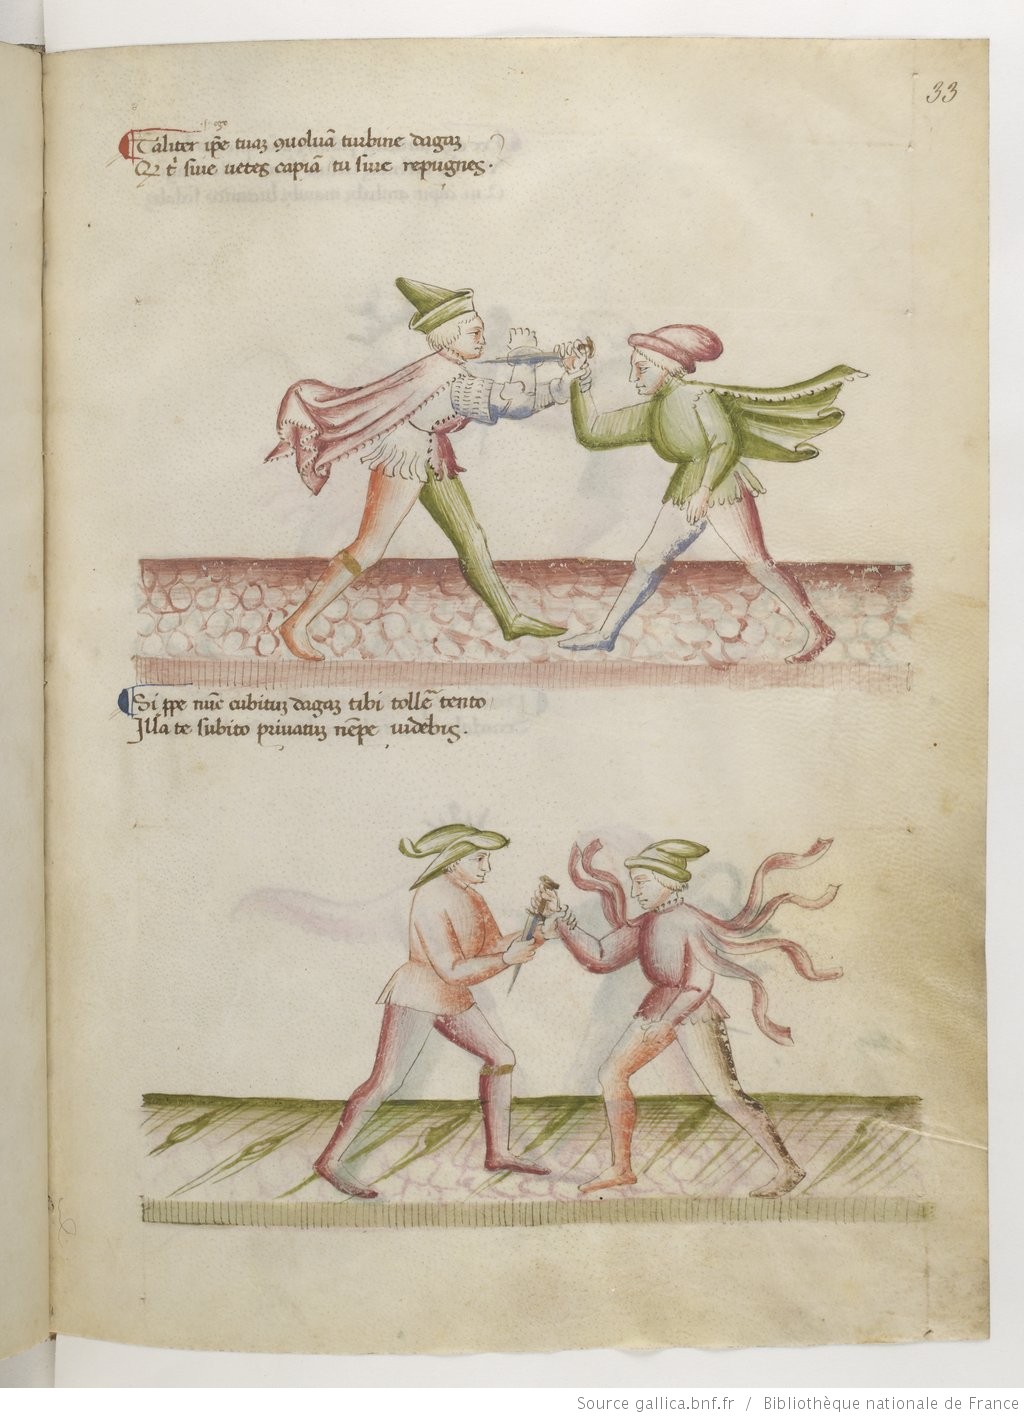 33
.s. ego
Taliter ip̄e tuaʒ ꝯuoluā turbine dagaʒ
Qꝫ t' siue uetes capiā tu siue repugnes.
Si p̲pe nūc cubituʒ dagaʒ tibi tollē tento
Illa te subito priuatuʒ nēpe uidebis.
Source gallica.bnf.fr / Bibliothèque nationale de France